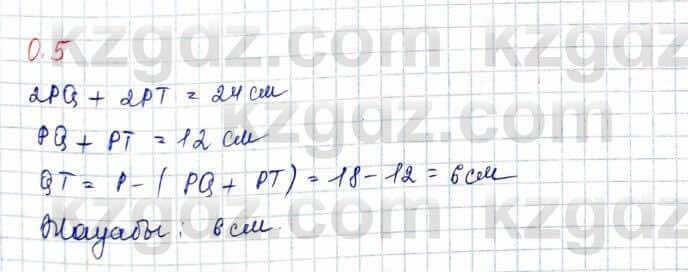 0.5
kzgdz.com
2PQ + 2PT = 24 см
PQ + PT = 12 см
kzgdz.com
QT = P - ( PQ + PT ) = 18 - 12 = 6 см
Жауабы: 6 см.